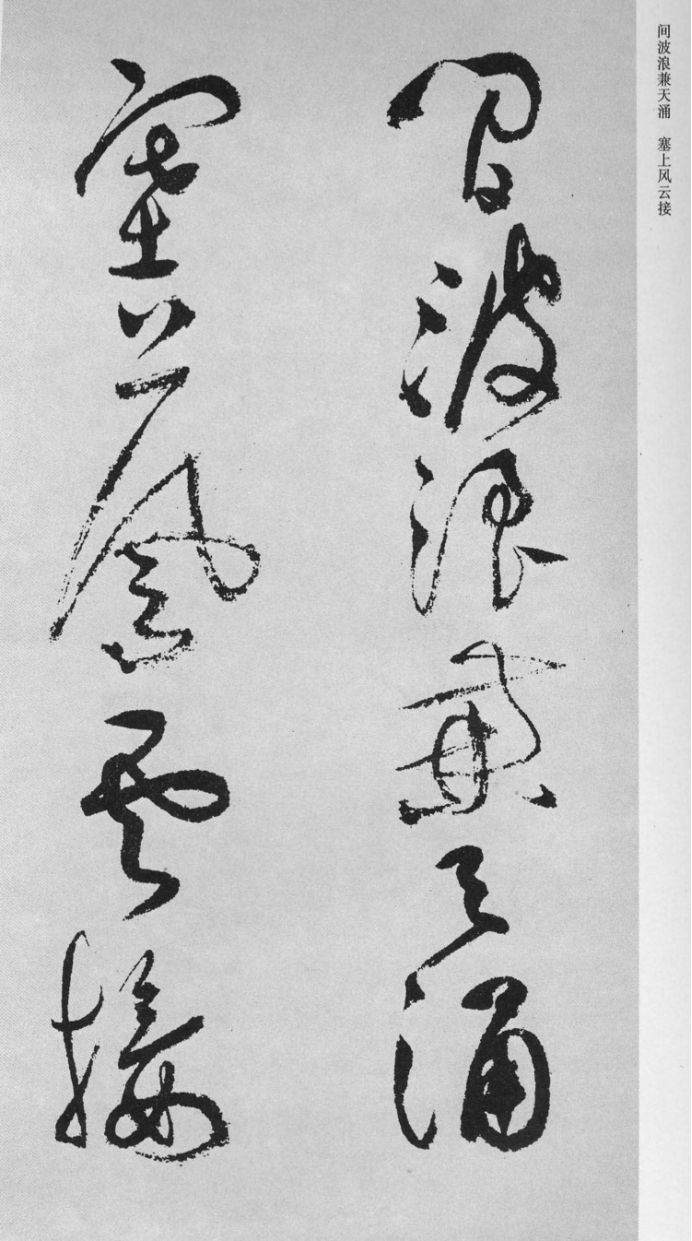 间波浪兼天涌　塞上风云接
間波浪兼天涌
塞上風雲接